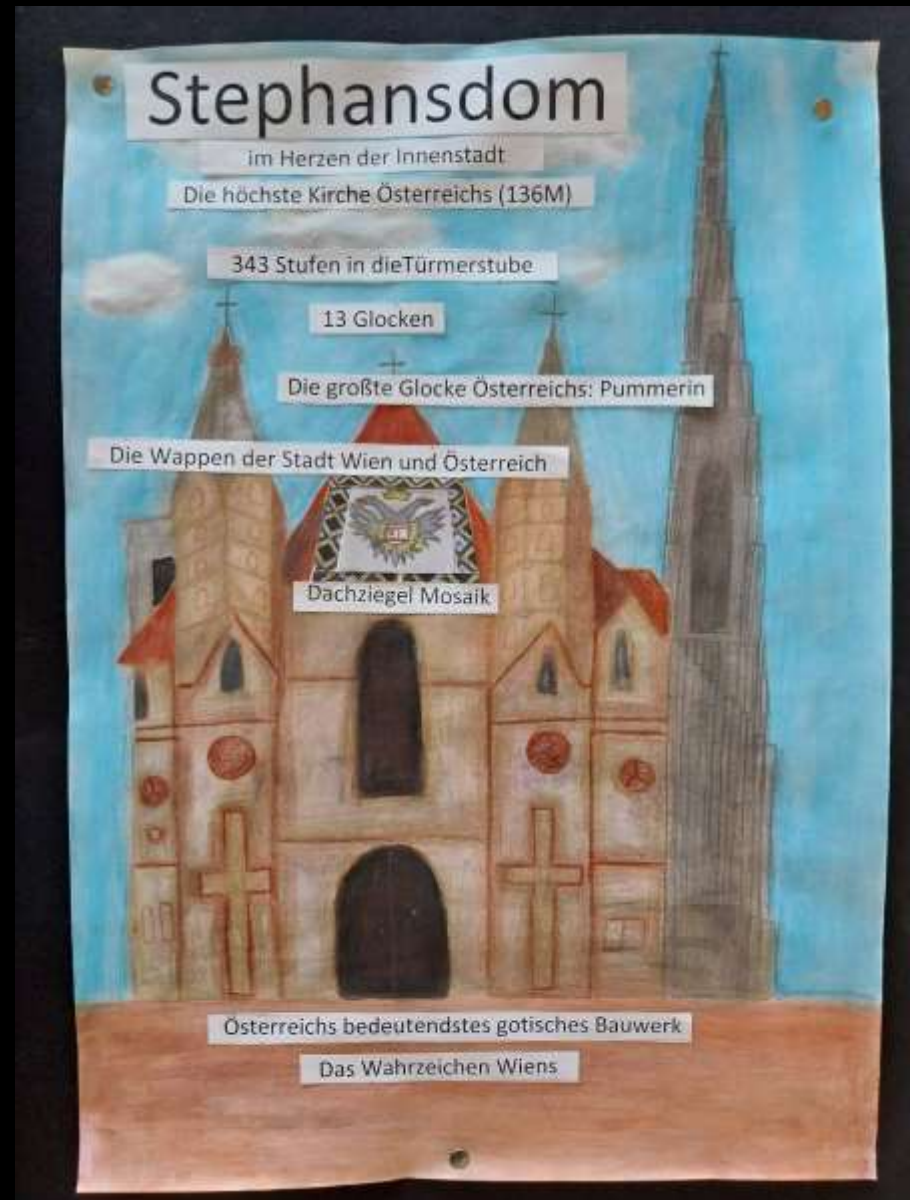 Stephansdom
im Herzen der Innenstadt
Die höchste Kirche Österreichs (136M)
343 Stufen in dieTürmerstube
13 Glocken
Die großte Glocke Österreichs: Pummerin
Die Wappen der Stadt Wien und Österreich
Dachziegel Mosaik
Österreichs bedeutendstes gotisches Bauwerk
Das Wahrzeichen Wiens